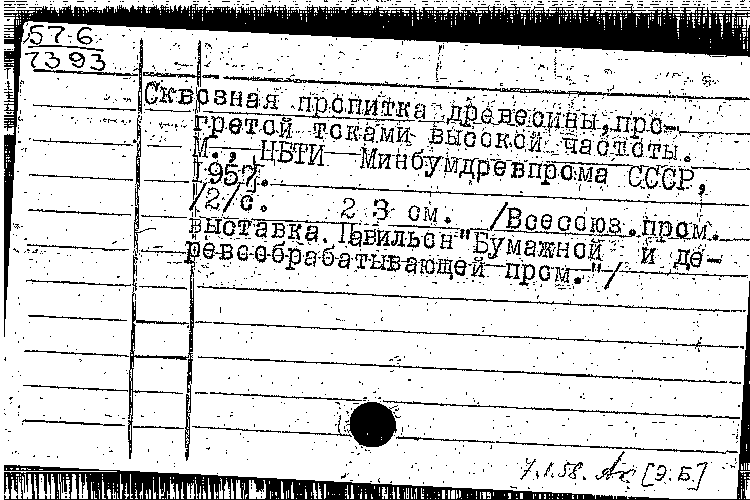 57-6
7393
Сквозная пропитка древесины, про-
гретой токами высокой частоты.
М., ЦБТИ Минбумдревпрома СССР,
1957.
/2/с. 23 см. /Всесоюз.пром.
выставка. Павильон "Бумажной и де-
ревообрабатывающей пром."/
7.1.58. [Э.Б.]